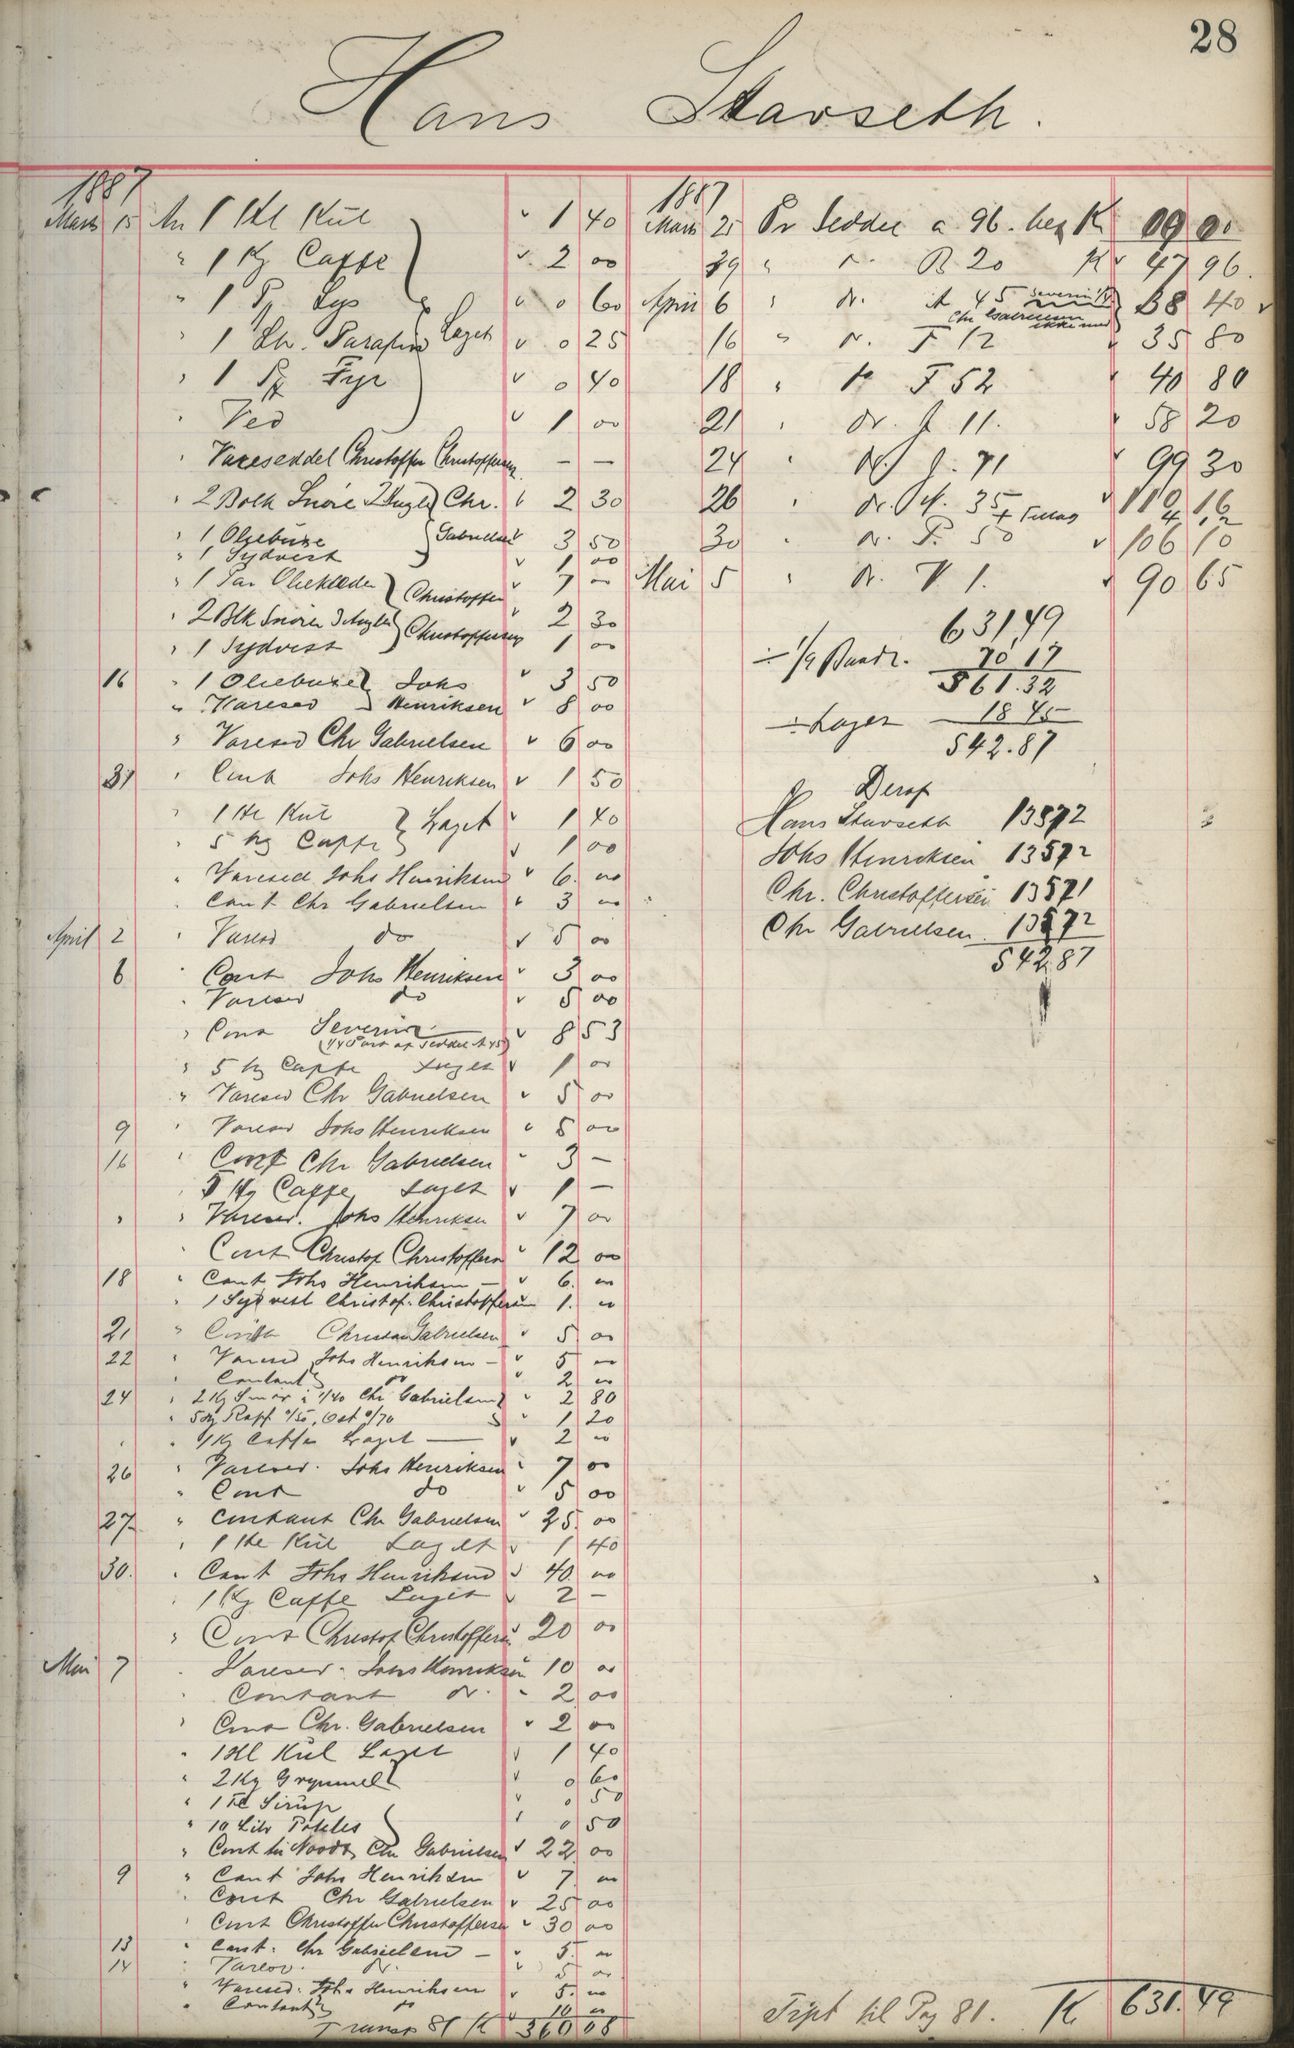 28
Hans Stavseth.
1887
Marts 15 An 1 Hl Kul " 1 40
" 1 Kg Caffe " 2 00
" 1 Pk Lys " 0 60
" 1 Ltr. Parafin Laget " 0 25
" 1 Pk Fyr " 0 40
" Ved " 1 00
" Vareseddel Christoffer Christoffersen — —
" 2 Bolk Snöre 2 Angle Chr. " 2 30
" 1 Oliebuxe Gabrielsen 3 50
" 1 Sydvest " 1 00
" 1 Par Olieklæder Christoffer " 7 —
" 2 Blk Snörer 3 Angler Christoffersen " 2 30
" 1 Sydvest 1 00
16 " 1 Oliebuxe Johs " 3 50
" Varesed Henriksen " 8 00
" Varesed Chr Gabrielsen " 6 00
31 " Cont Johs Henriksen " 1 50
" 1 Hl Kul Laget " 1 40
" 5 Hg Caffe " 1 00
" Varesed Johs Henriksen " 6. 00
" Cont Chr Gabrielsen " 3 00
April 2 " Varesed do " 5 00
6 " Cont Johs Henriksen " 3 00
" Varesed do " 5 00
" Cont Severin " 8 53
(1/4 Part af Seddel A 45)
" 5 Hg Caffe Laget " 1 00
" Varesed Chr Gabrielsen " 5 00
9 " Varesed Johs Henriksen " 5 00
16 " Cont Chr Gabrielsen " 3 —
" 5 Hg Caffe Laget " 1 —
" " Varesed. Johs Henriksen " 7 00
" Cont Christof Christoffersen " 12 00
18 " Cont Johs Henriksen — " 6. 00
" 1 Sydvest Christof. Christoffersen 1. 00
21 " Cont Christian Gabrielsen " 5 00
22 " Varesed Johs Henriksen — " 5 00
" Contant do " 2 00
24 " 2 Kg Smör a 1/40 Chr Gabrielsen " 2 80
" 5 Hg Kaff 0/50, Ost 0/70 " 1 20
" " 1 Kg Caffe Laget — " 2 00
26 " Varesed. Johs Henriksen " 7 00
" Cont do " 5 00
27 " Contant Chr Gabrielsen " 25. 00
" 1 Hl Kul Laget " 1 40
30. " Cont Johs Henriksen " 40 00
" 1 Kg Caffe Laget " 2 —
" Cont Christof Christoffersen 20 00
Mai 7 " Varesed. Johs Henriksen 10 00
" Contant do. " 2 00
" Cont Chr. Gabrielsen " 2 00
" 1 Hl Kul Laget " 1 40
" 2 Kg Grynmel " 0 60
" 1 Sirup " 0 50
" 10 Litr Potetes " 0 50
" Cont Chr Gabrielsen " 22 00
9 " Cont Johs Henriksen " 7 00
" Cont Chr Gabrielsen " 25 00
" Cont Christoffer Christoffersen " 30 00
13 " Cont. Chr Gabrielsen — " 5. 00
14 " Varesed. do. " 5 00
" Varesed. Johs Henriksen " 5. 00
" Contant do " 10 00
Transp 81 K 360 08
1887
Marts 25 Pr Seddel a 96. beg K 09 00
29 " do. B 20 K " 47 96.
April 6 " do. A 45 Severin B8 40 "
Chr Gabrielsen ikke med
16 " do. F 12 " 35 80
18 " do F 52 " 40 80
21 " do. J 11. " 58 20
24 " do. J. 71 " 99 30
26 " do. M. 35 " 110 16
+ Tillæg 4 12
30 " do. P. 50 " 106 10
Mai 5 " do. V 1. " 90 65
631,49
÷ 1/9 Baadt. 70 17
561.32
÷ Laget 18 45
542.87
Deraf
Hans Stavseth 13572
Johs Henriksen 13572
Chr. Christoffersen 13571
Chr Gabrielsen 13572
542,87
Tspt til Pag 81. K 631.49